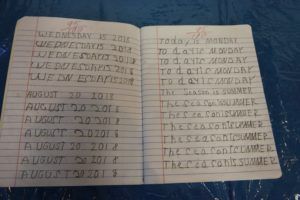 WEDNESDAY IS 2018
WEDNESDAYIS 2018
WEDNESDAYIS 2018
WEDNESDAYIS 2018
WEDNESDAYIS 2018
AUGUST 20 2018
AUGUST 20 2018
AUGUST 20 2018
AUGUST 20 2018
AUGUST 20 2018
AUGUST 20 2018
Today is MONDAY
To day is MONDAY
To day is MONDAY
To day is MONDAY
To day is MONDAY
The Season is SUMMER
The SeasonisSUMMER
The SeasonisSUMMER
The SeasonisSUMMER
The SeasonisSUMMER
The SeasonisSUMMER